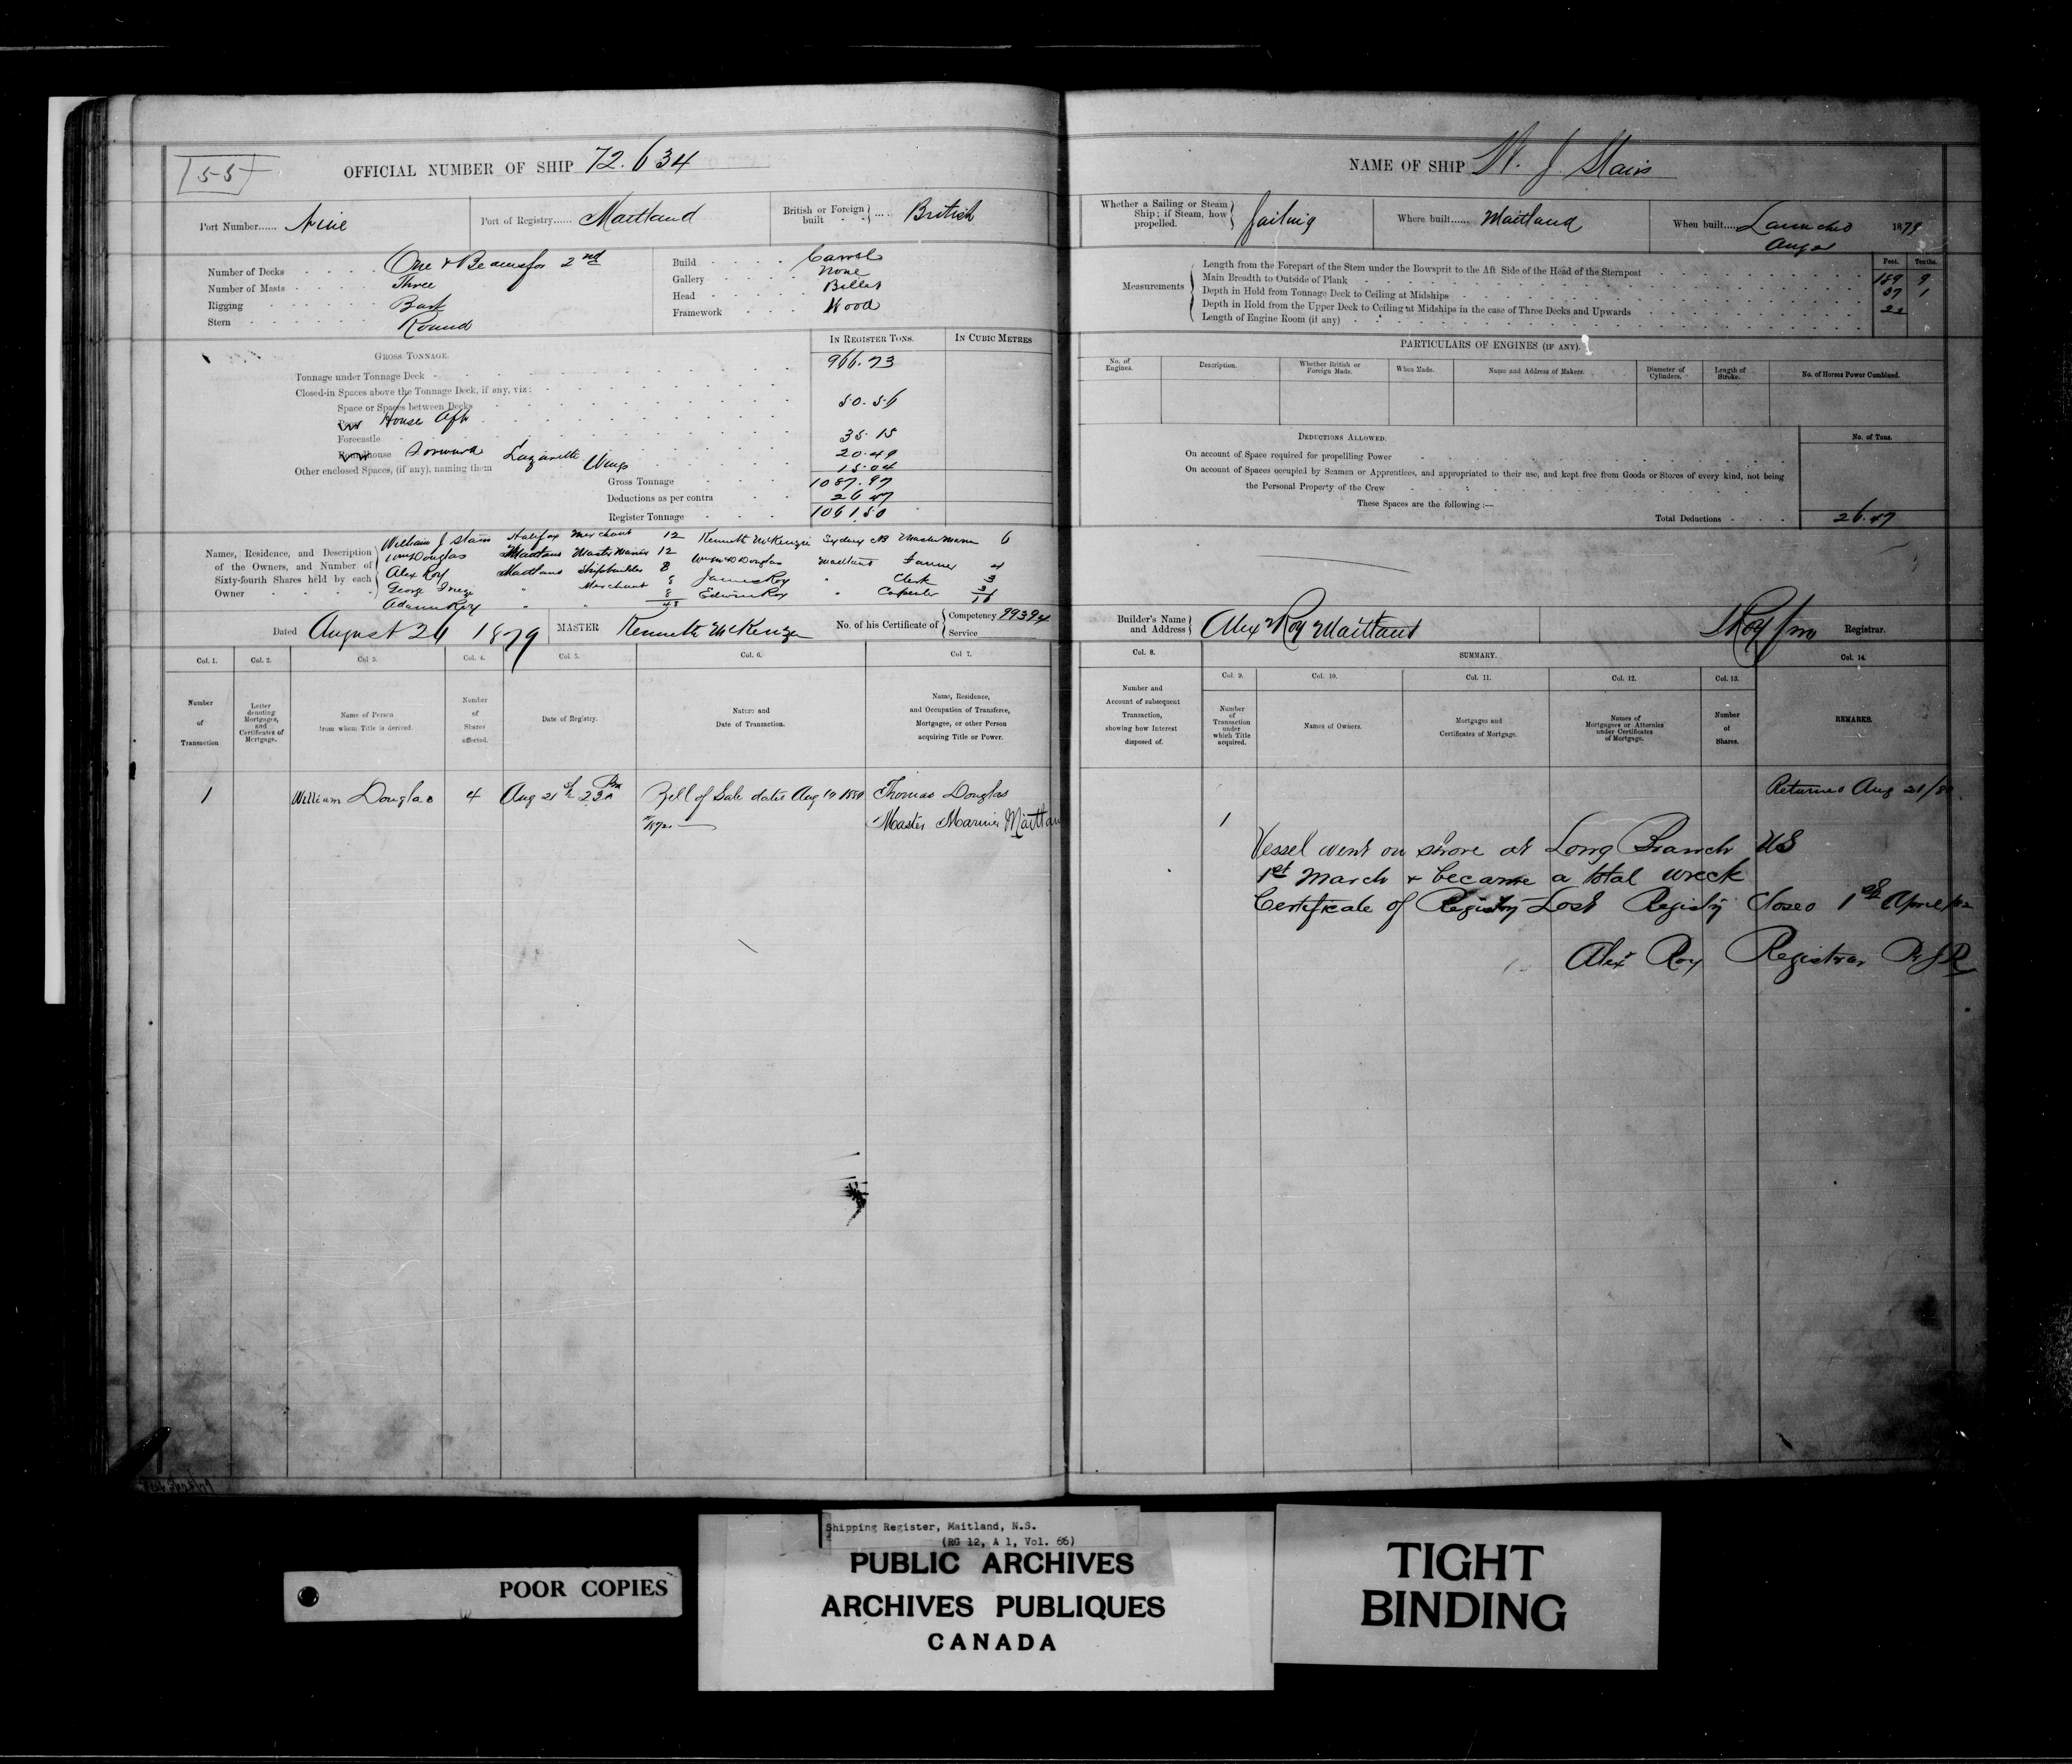 55
OFFICIAL NUMBER OF SHIP 72.634
Port Number...... Nine
Port of Registry...... Maitland
British or Foreign built .... British
Number of Decks One & Beams for 2nd
Number of Masts Three
Rigging Bark
Stern Round
Build Carvel
Gallery None
Head Billet
Framework Wood
IN REGISTER TONS. IN CUBIC METRES
GROSS TONNAGE.
Tonnage under Tonnage Deck 966.73
Closed-in Spaces above the Tonnage Deck, if any, viz:
Space or Spaces between Decks
House Aft 50.56
Forecastle
Roundhouse Forward 35.15
Lazarette 20.49
Other enclosed Spaces, (if any), naming them Wings 15.04
Gross Tonnage 1087.97
Deductions as per contra 26 47
Register Tonnage 1061.50
Names, Residence, and Description of the Owners, and Number of Sixty-fourth Shares held by each Owner
William J Stairs Halifax Merchant 12
Wm Douglas Maitland Master Mariner 12
Alex Roy Maitland Shipbuilder 8
George " Merchant 8
Adam Roy " " 8
48
Kenneth McKenzie Sydney CB Master Marin 6
Douglas Maitland Farmer 4
James Roy " Clerk 3
Edwin Roy " Carpenter 3
16
Dated August 26 1879
MASTER Kenneth McKenzie
No. of his Certificate of Competency 99394
Service
Col. 1. Col. 2. Col 3. Col. 4. Col. 5. Col. 6. Col 7.
Number of Transaction
Letter denoting Mortgages, and Certificates of Mortgage.
Name of Person from whom Title is derived.
Number of Shares affected.
Date of Registry.
Nature and Date of Transaction.
Name, Residence, and Occupation of Transferee, Mortgagee, or other Person acquiring Title or Power.
1 William Douglas 4 Aug 21st 2 30 Pm Bill of Sale dated Aug 19 1880 Thomas Douglas
Master Mariner Maitlan
NAME OF SHIP W. J. Stairs
Whether a Sailing or Steam Ship; if Steam, how propelled. Sailing
Where built...... Maitland
When built.... Launched 1879
Measurements
Feet. Tenths.
Length from the Forepart of the Stem under the Bowsprit to the Aft Side of the Head of the Sternpost 189 9
Main Breadth to Outside of Plank 37 1
Depth in Hold from Tonnage Deck to Ceiling at Midships 22
Depth in Hold from the Upper Deck to Ceiling at Midships in the case of Three Decks and Upwards
Length of Engine Room (if any)
PARTICULARS OF ENGINES (IF ANY).
No. of Engines. Description. Whether British or Foreign Made. When Made. Name and Address of Makers. Diameter of Cylinders. Length of Stroke. No. of Horses Power Combined.
DEDUCTIONS ALLOWED. No. of Tons.
On account of Space required for propellling Power
On account of Spaces occupied by Seamen or Apprentices, and appropriated to their use, and kept free from Goods or Stores of every kind, not being
the Personal Property of the Crew
These Spaces are the following :—
Total Deductions 26.47
Builder's Name and Address Alex Roy Maitland
Registrar.
Col. 8. SUMMARY. Col. 14.
Col. 9. Col. 10. Col. 11. Col. 12. Col. 13.
Number and Account of subsequent Transaction, showing how Interest disposed of.
Number of Transaction under which Title acquired.
Names of Owners.
Mortgages and Certificates of Mortgage.
Names of Mortgagees or Attornies under Certificates of Mortgage.
Number of Shares.
REMARKS.
Returned Aug 21/80
1
Vessel went on shore at Long Branch US
1st March & became a total wreck
Certificate of Registry Lost Registry Closed 1st April
Alex Roy Registrar
Shipping Register, Maitland, N.S.
(RG 12, A 1, Vol. 66)
POOR COPIES
PUBLIC ARCHIVES
ARCHIVES PUBLIQUES
CANADA
TIGHT
BINDING